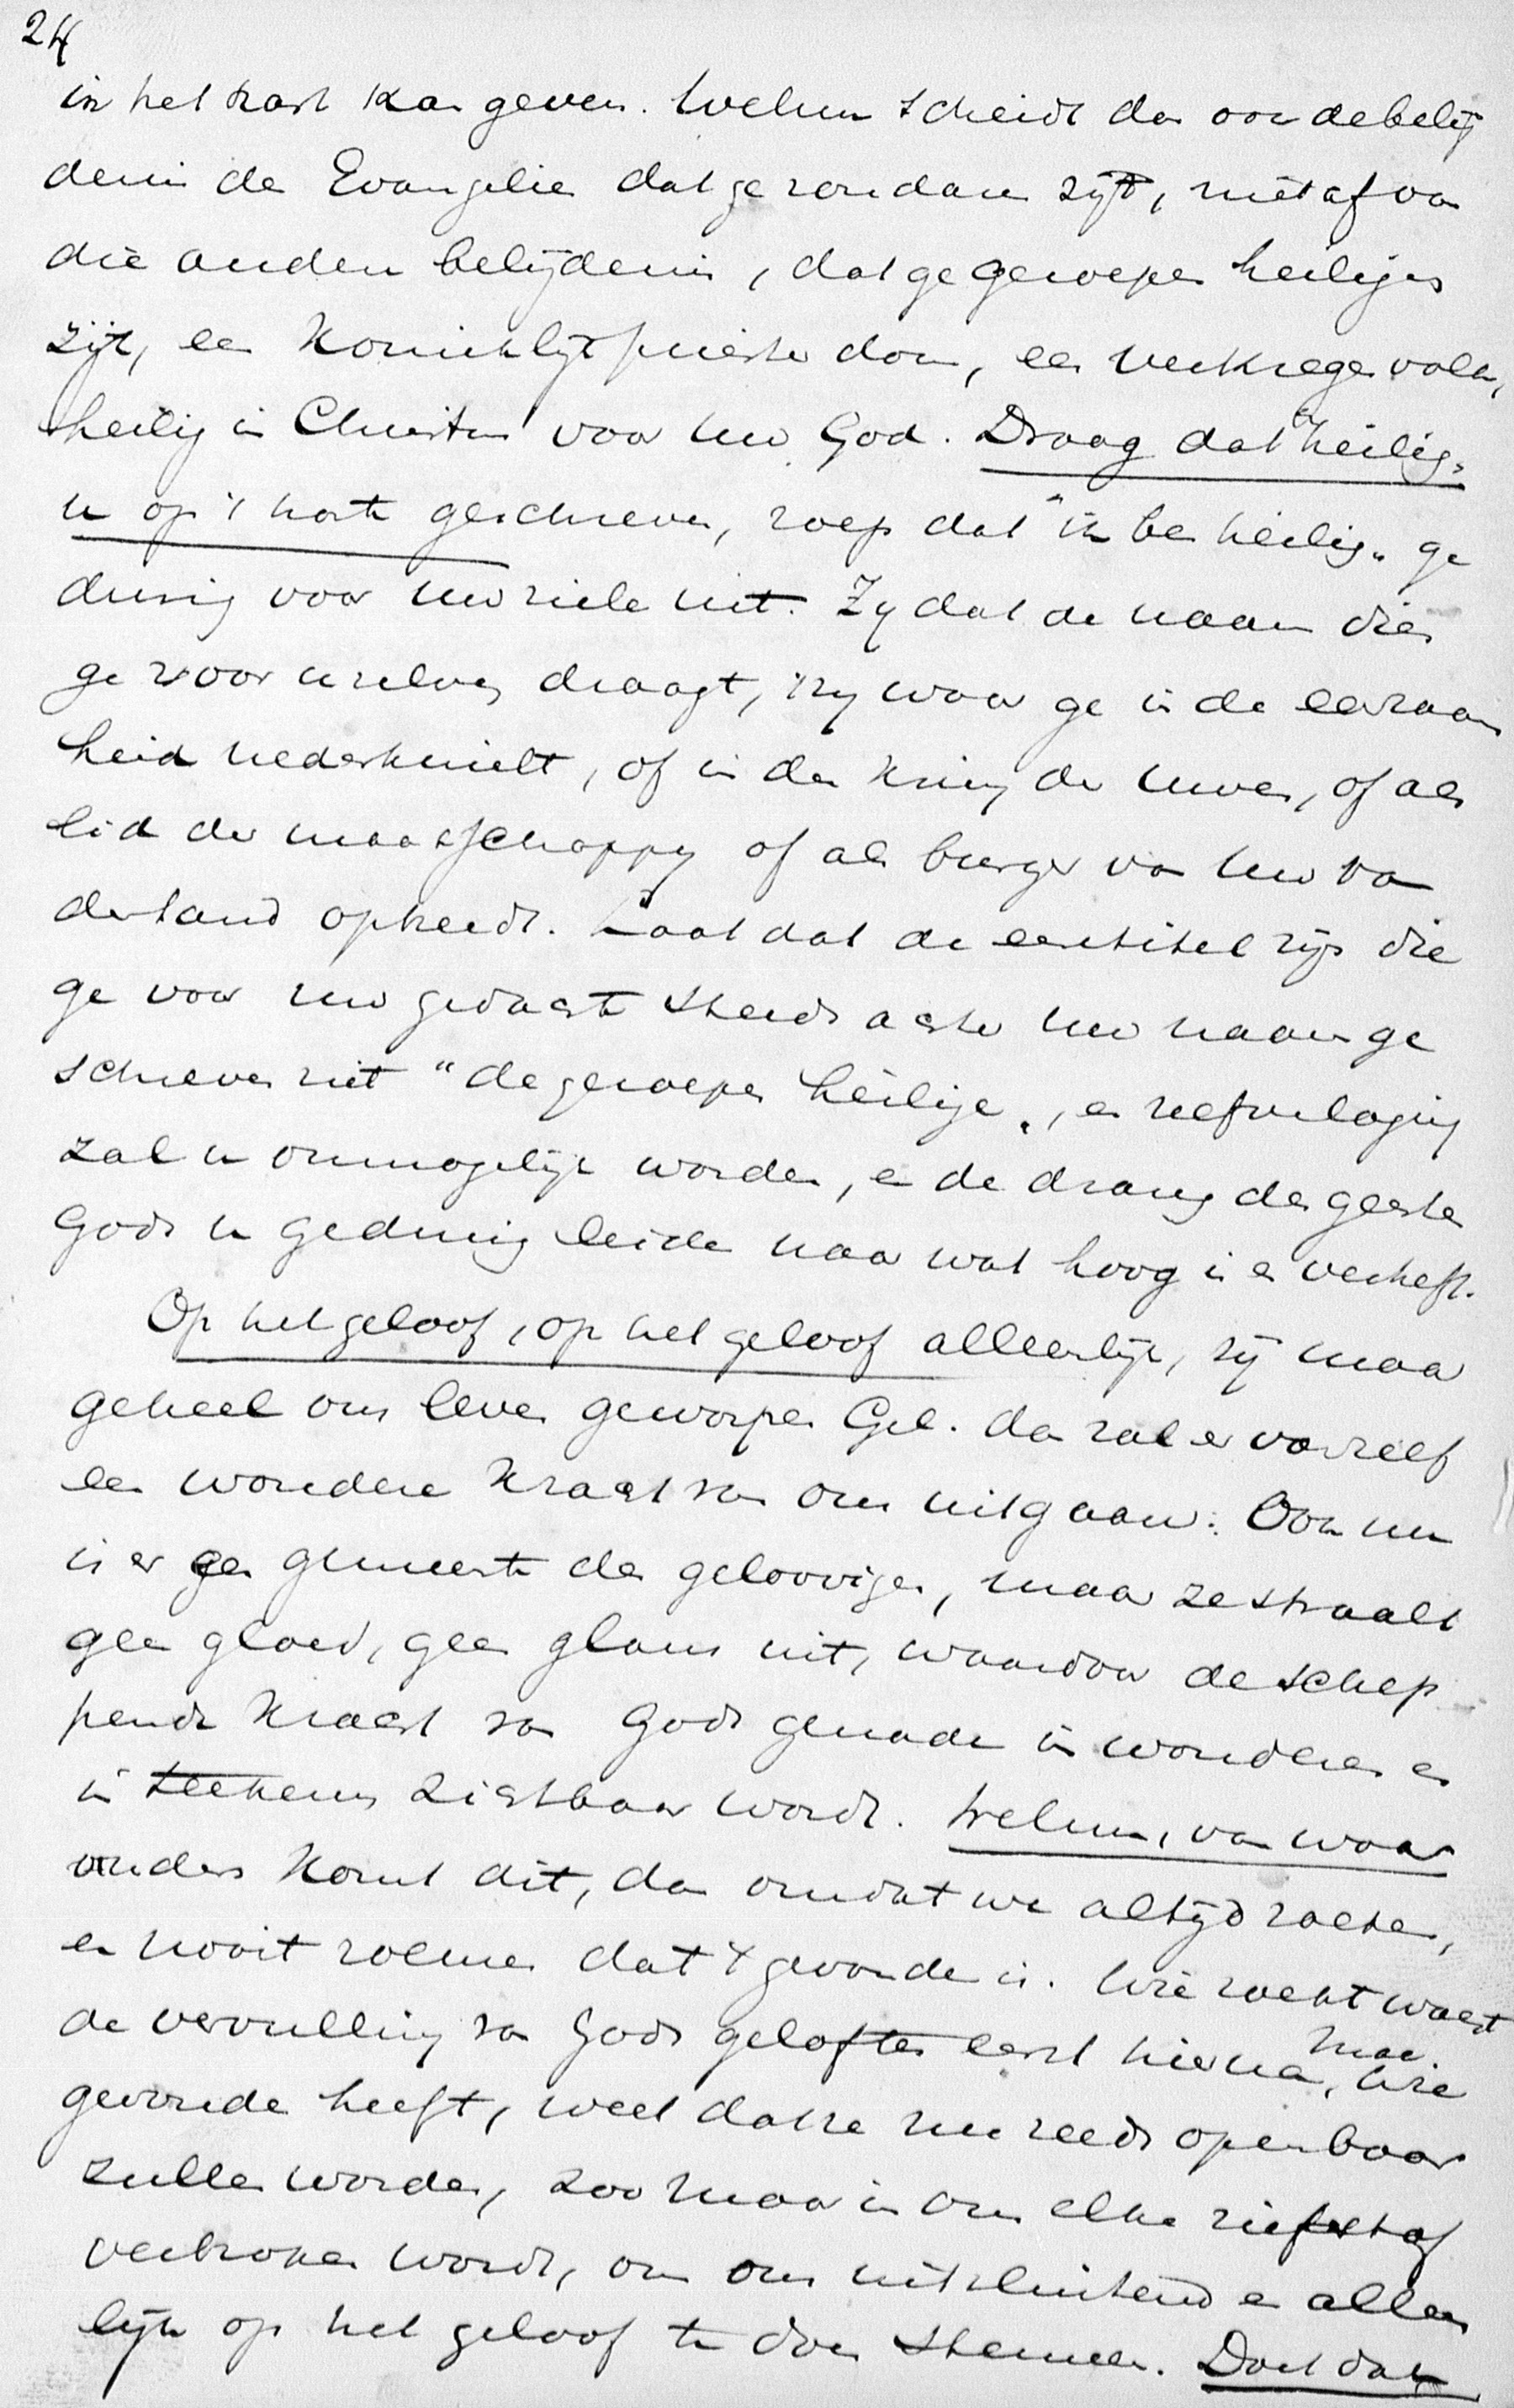 24
in het hart kan geven. Welnu scheidt dan ook de belij
denis des Evangelies dat ge zondaren zijt, niet af van
die andere belijdenis, dat ge geroepen heiligen
zijt, een Koninklijk priesterdom, een verkregen volk,
heilig in Christus voor uw God. Draag dat "heilig"
u op 't harte geschreven, roep dat "ik ben heilig" ge
durig voor uw ziele uit. Zij dat de naam dien
ge voor uzelven draagt, 't zij waar ge in de eenzaam
heid nederknielt, of in den kring der uwen, of als
lid der maatschappy of als burger van uw va
derland optreedt. Laat dat de eeretitel zijn die
ge voor uw gedachte steeds achter uw naam ge
schreven ziet "de geroepen heilige", en zelfverlaging
zal u onmogelijk worden, en de drang des geestes
Gods u gedurig leiden naar wat hoog is en verheft.
Op het geloof, op het geloof alleenlijk, zij maar
geheel ons leven geworpen Gel. dan zal er vanzelf
een wondere Kracht van ons uitgaan. Ook nu
is er een gemeente der geloovigen, maar ze straalt
geen gloed, geen glans uit, waardoor de schep
pende Kracht van Gods genade in wonderen en
in teekenen zichtbaar wordt. Welnu, van waar
anders komt dit, dan omdat we altijd zoeken,
en nooit roemen dat 't gevonden is. Wie zoekt wacht
de vervulling van Gods geloften eerst hierna, maar wie
gevonden heeft, weet dat ze nu reeds openbaar
zullen worden, zoo maar in ons elke rietstaf
verbroken wordt, om ons uitsluitend en alleen
lijk op het geloof te doen steunen. Doch dan